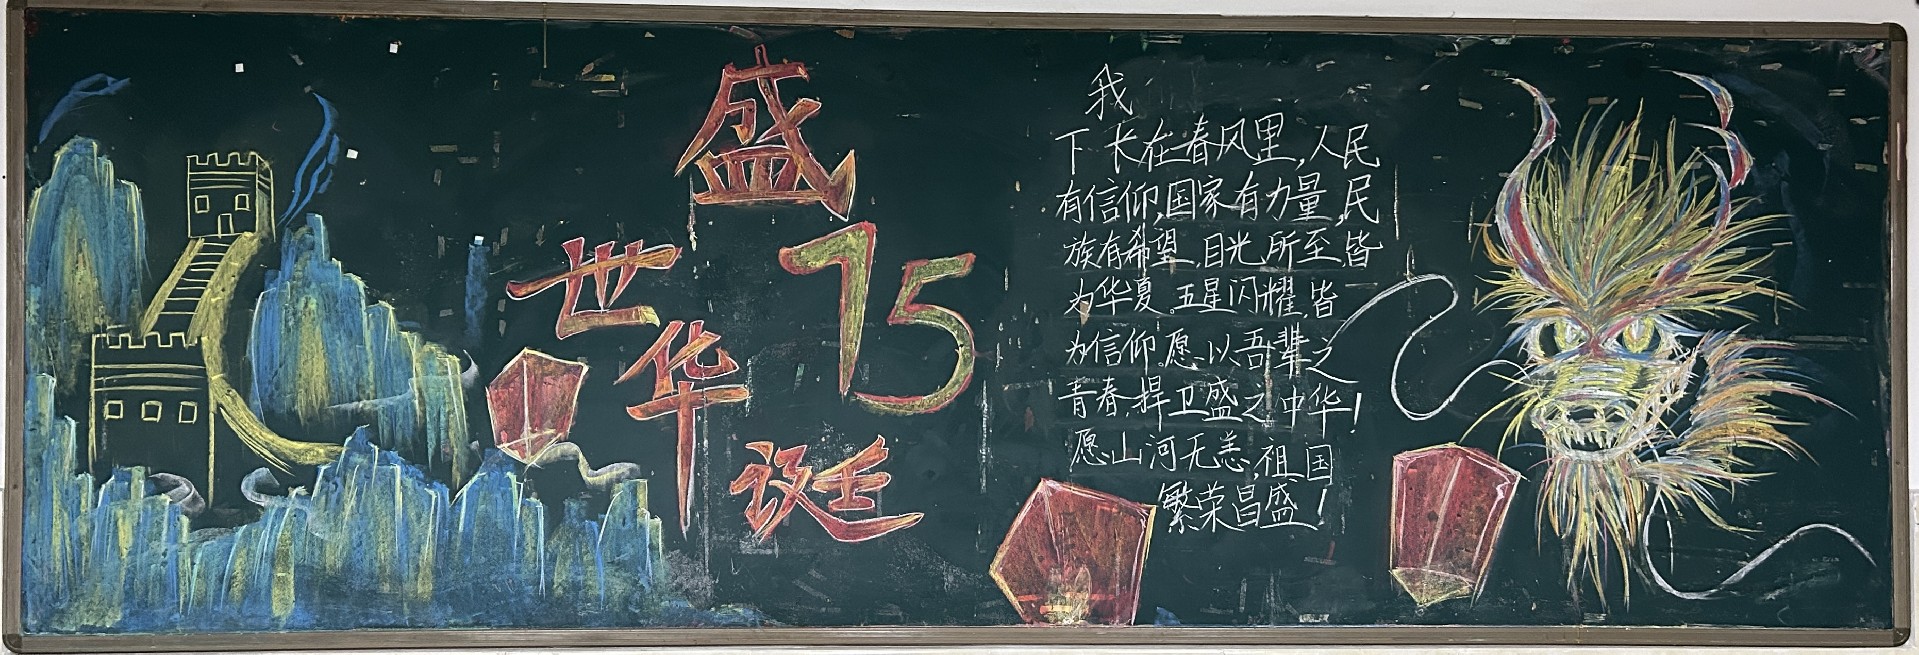 盛
世
75
华
诞
我
下长在春风里,人民
有信仰,国家有力量,民
族有希望.目光所至,皆
为华夏。五星闪耀,皆
为信仰.愿以吾辈之
青春,捍卫盛之中华!
愿山河无恙,祖国
繁荣昌盛!